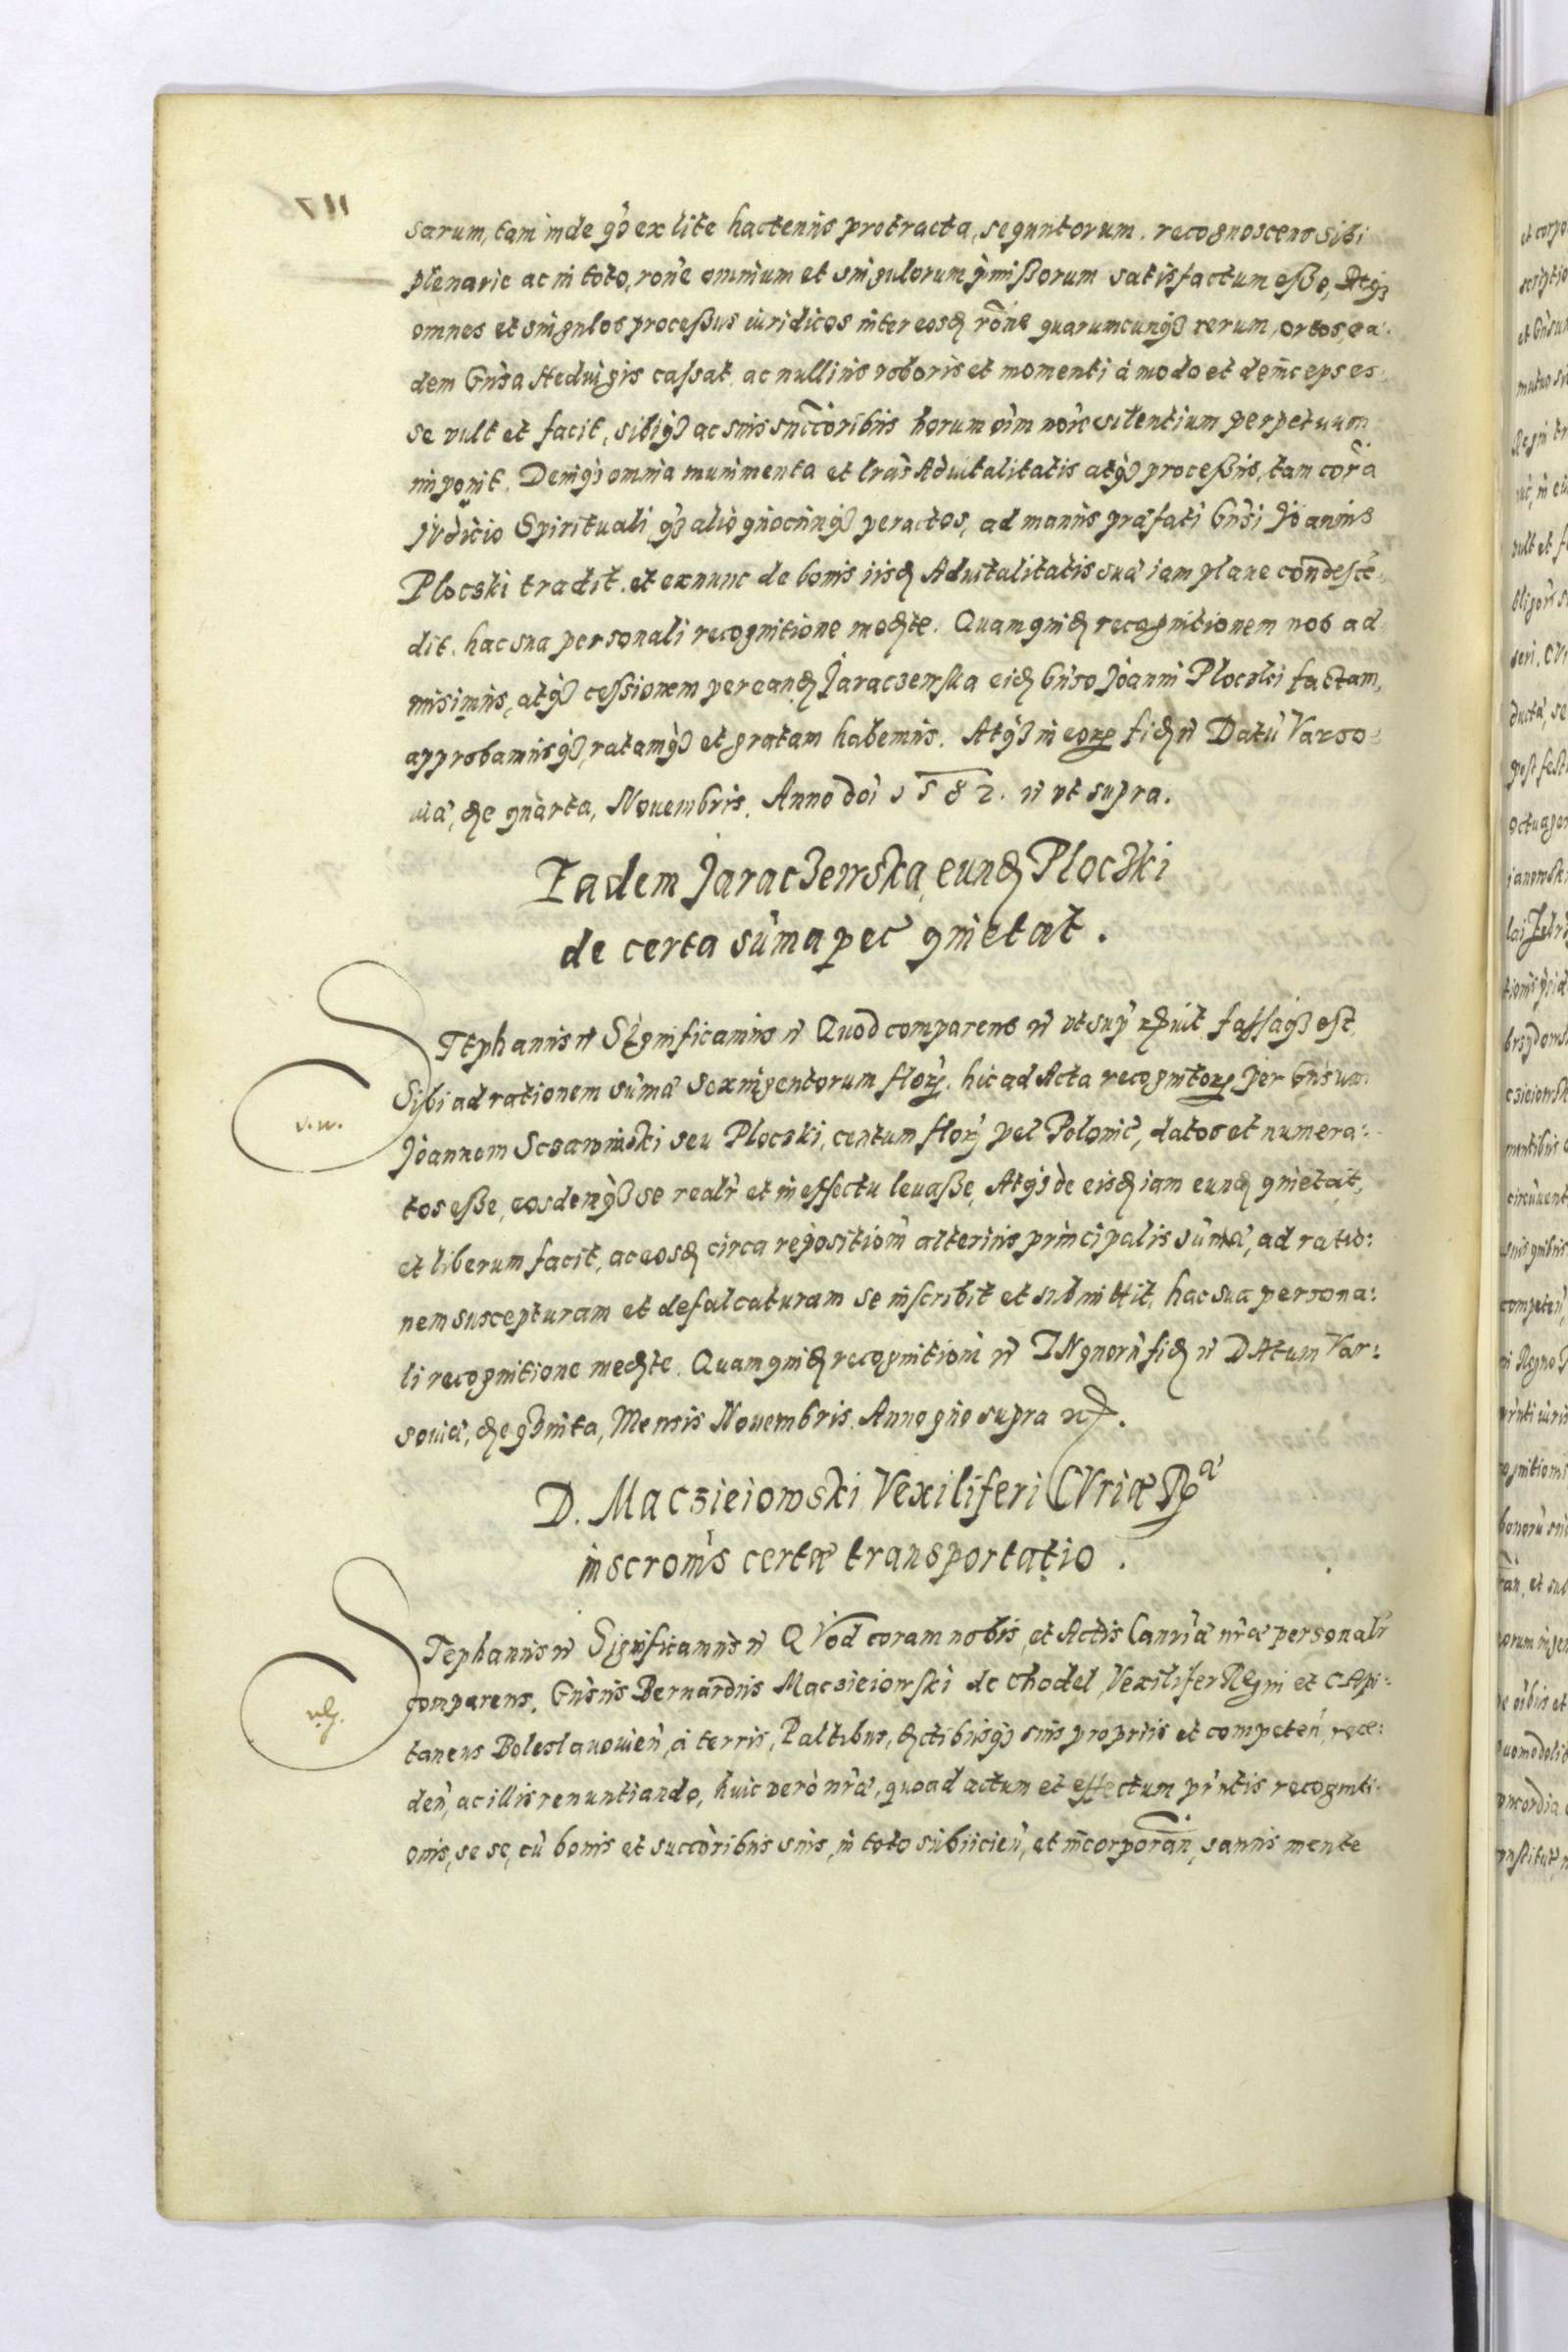 sarum, tam inde q3 ex lite hactenus protracta, sequutorum. recognoscens sibi
plenarie ac in toto, rone omnium et singulorum pmißorum satisfactum eße, Atq3
omnes et singulos proceßus iuridicos inter eosd rone quarumcunq3 rerum, ortos, ea-
dem Gnsa Hedwigis caßat, ac nullius roboris et momenti à modo et deinceps es-
se vult et facit, sibiq3 ac suis succoribus horum oim noie silentium perpetuum
imponit. Deniq3 omnia munimenta et lras Aduitalitatis atq3 proceßus, tam cora
Iudicio Spirituali, q3 alio quocunq3 peractos, ad manus præfati Gnsi Joannis
Plocski tradit. et exnunc de bonis iisd Aduitalitatis suæ iam plane condesce-
dit. hac sua personali recognitione medte. Quam quid recognitionem nos ad
misimus, atq3 ceßionem per eand Jaraczewska eid Gnso Joanni Plocski factam,
approbamusq3, ratamq3 et gratam habemus. Atq3 in eorz fid n Datu Varso-
uiæ, die quarta, Nouembris. Anno doi 1582. n vt supra.
Eadem Jaraczewska eund Plocski
de certa suma pec quietat.
STephanus n Significamus n Quod comparens n vt sup rd uit faßaq3 est,
Sibi ad rationem sumæ sexingentorum flor. hic ad Acta recognitorz per Gnsum
v. w.
Joannem Scsawinski seu Plocski, centum flor pel Polonic, datos et numera:
tos eße, eosdemq3 se realr et in effectu leuaße, Atq3 de eisd iam eund quietat,
et liberum facit, ac eosd circa repositiom alterius principalis sumæ, ad ratio:
nem suscepturam et defalcaturam se inscribit et submittit, hac sua persona:
li recognitione medte. Quam quid recognitiom n IN quoru fid n DAtum Var:
souiæ, die quinta, Mensis Nouembris. Anno quo supra
D. Maczieiowski Vexiliferi CVriæ Rg
inscronis certæ transportatio.
STephanus n Significamus n QVod coram nobis, et Actis Canriæ nræ personalr
comparens, Gnsus Bernardus Maczieiowski de Chodel, Vexilifer Regni et CApi:
taneus Boleslauouien, à terris, Paltibus, dctibusq3 suis propriis et competen, rece:
den, ac illis renuntiando, huic verò nræ, quoad actum et effectum pntis recogniti-
onis, se se, cu bonis et succoribus suis, in toto subiicien, et incorporan, sanus mente